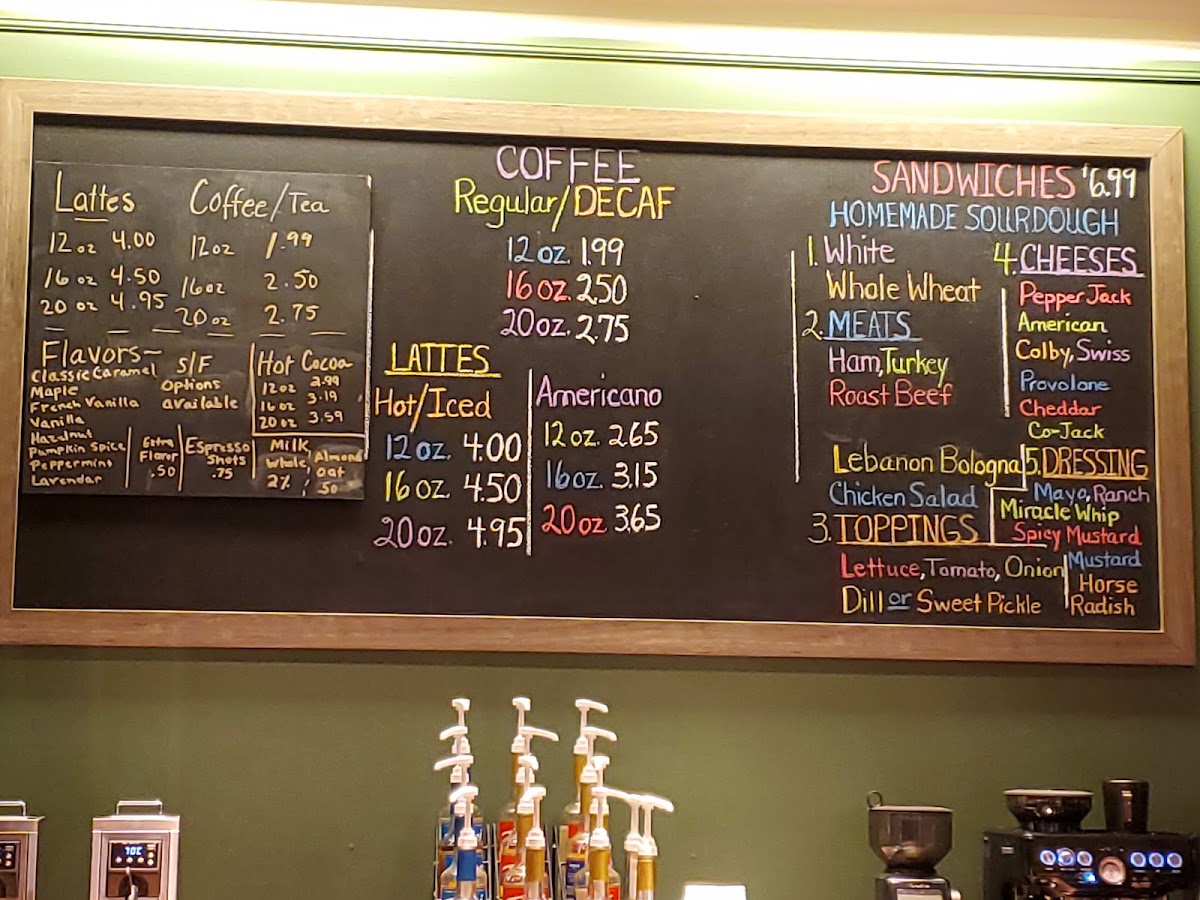 Lattes
12 oz 4.00
16 oz 4.50
20 oz 4.95
Coffee/Tea
12 oz 1.99
16 oz 2.50
20 oz 2.75
Flavors~
Classic Caramel
Maple
French Vanilla
Vanilla
Hazelnut
Pumpkin Spice
Peppermint
Lavendar
S/F
Options
available
Extra
Flavor
.50
Espresso
Shots
.75
Hot Cocoa
12 oz 2.99
16 oz 3.19
20 oz 3.59
Milk
Whole
2%
Almond
oat
.50
COFFEE
Regular/DECAF
12 oz. 1.99
16 oz. 2.50
20 oz. 2.75
LATTES
Hot/Iced
12 oz. 4.00
16 oz. 4.50
20 oz. 4.95
Americano
12 oz. 2.65
16 oz. 3.15
20 oz 3.65
SANDWICHES $6.99
HOMEMADE SOURDOUGH
1. White
Whale Wheat
2. MEATS
Ham, Turkey
Roast Beef
Lebanon Bologna
Chicken Salad
3. TOPPINGS
Lettuce, Tomato, Onion
Dill or Sweet Pickle
4. CHEESES
Pepper Jack
American
Colby, Swiss
Provolone
Cheddar
Co-Jack
5. DRESSING
Mayo, Ranch
Miracle Whip
Spicy Mustard
Mustard
Horse
Radish